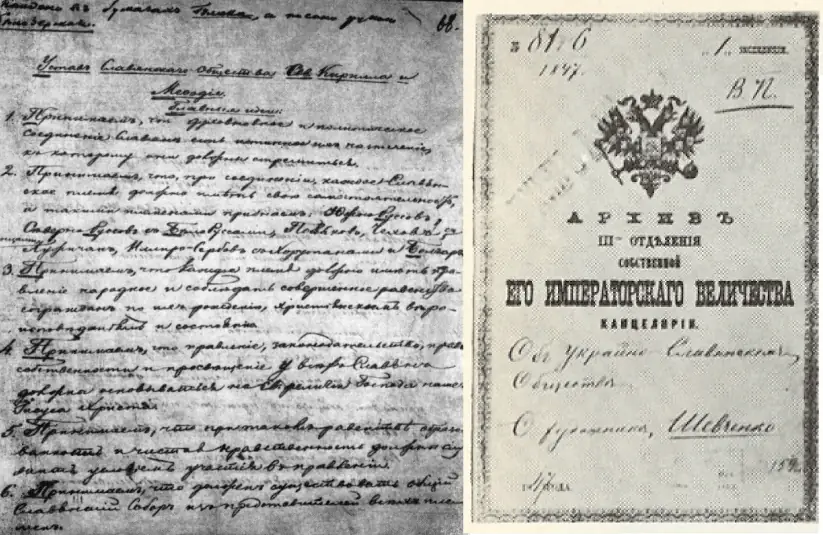 въ бумагахъ Гулака, а писано рукою
68.
Уставъ Славянскаго Общества Св. Кирилла и
Меѳодія.
Главныя идеи:
1. Принимаемъ, что духовное и политическое
соединеніе Славянъ есть истинное ихъ назначеніе,
къ которому они должны стремиться.
2. Принимаемъ, что при соединеніи, каждое Славян-
ское племя должно имѣть свою самостоятельность,
а такими племенами признаемъ: Южно-Руссовъ,
Сѣверно-Руссовъ съ Бѣлоруссами, Поляковъ, Чеховъ съ
Лужичанъ, Иллиро-Сербовъ съ Хурутанами и Болгаръ.
3. Принимаемъ, что каждое племя должно имѣть пра-
вленіе народное и соблюдать совершенное равенство
согражданъ по ихъ рожденію, христіанскимъ вѣро-
исповѣданіямъ и состоянію.
4. Принимаемъ, что правленіе, законодательство, право
собственности и просвѣщеніе у всѣхъ Славянъ
должны основываться на религіи Господа нашего
Іисуса Христа.
5. Принимаемъ, что при таковомъ равенствѣ образо-
ванность и чистая нравственность должны слу-
жить условіемъ участія въ правленіи.
6. Принимаемъ, что долженъ существовать общій
Славянскій Соборъ изъ представителей всѣхъ пле-
менъ.
№ 81 ч 6
1847.
„1" экспедиціи.
В П.
АРХИВЪ
III-го ОТДѢЛЕНІЯ
СОБСТВЕННОЙ
ЕГО ИМПЕРАТОРСКАГО ВЕЛИЧЕСТВА
КАНЦЕЛЯРІИ.
Об Украйно-Славянскомъ
Обществѣ
О художникѣ Шевченко
1847 ГОДА.